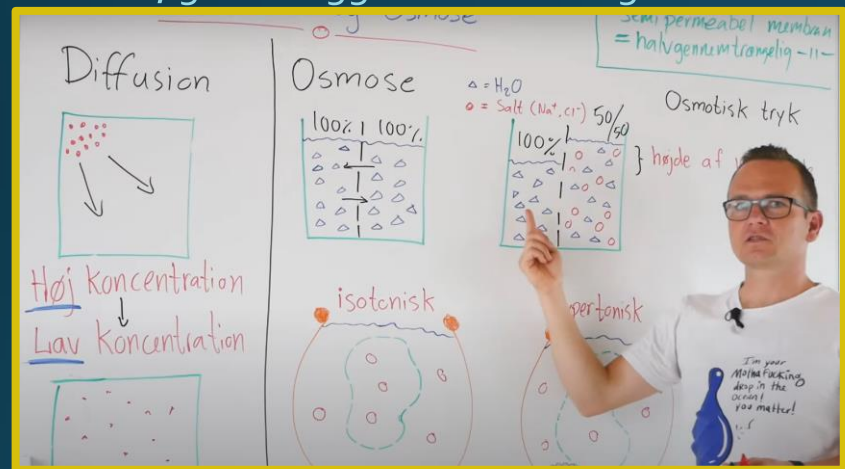 Osmose
semi permeabel membran
= halvgennemtrængelig -11-
Diffusion
Høj koncentration
Lav koncentration
Osmose
100% 100%
isotonisk
△ = H₂O
o = Salt (Na⁺, Cl⁻)
100% 50/50
Osmotisk tryk
højde af
pertonisk
I'm your
Motha Fucking
drop in the
ocean!
you matter!